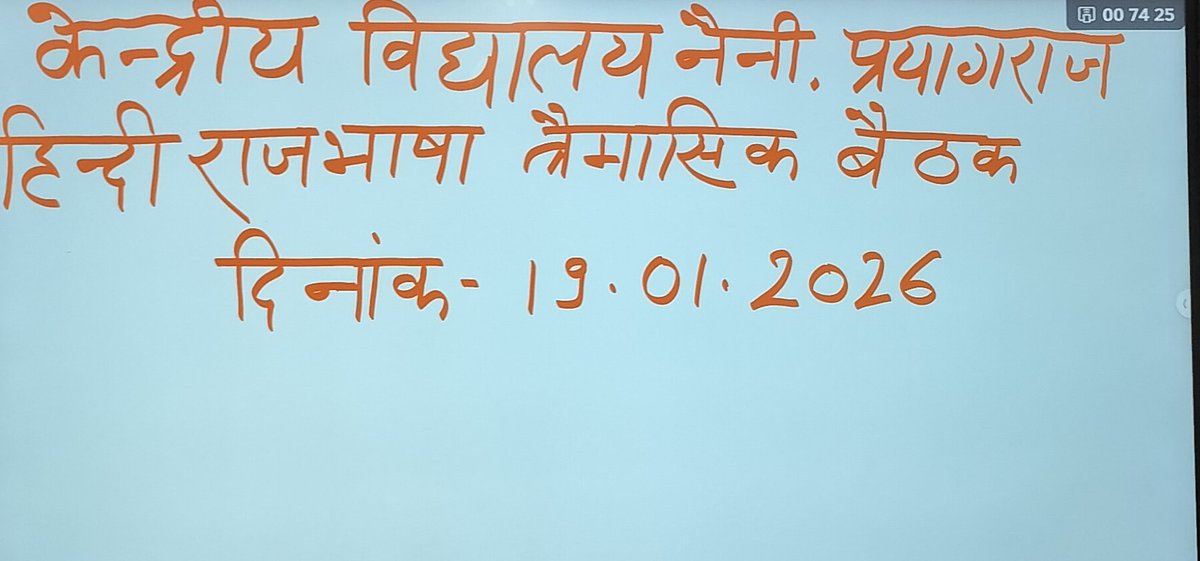 00 74 25
केन्द्रीय विद्यालय नैनी. प्रयागराज
हिन्दी राजभाषा त्रैमासिक बैठक
दिनांक - 19.01.2026